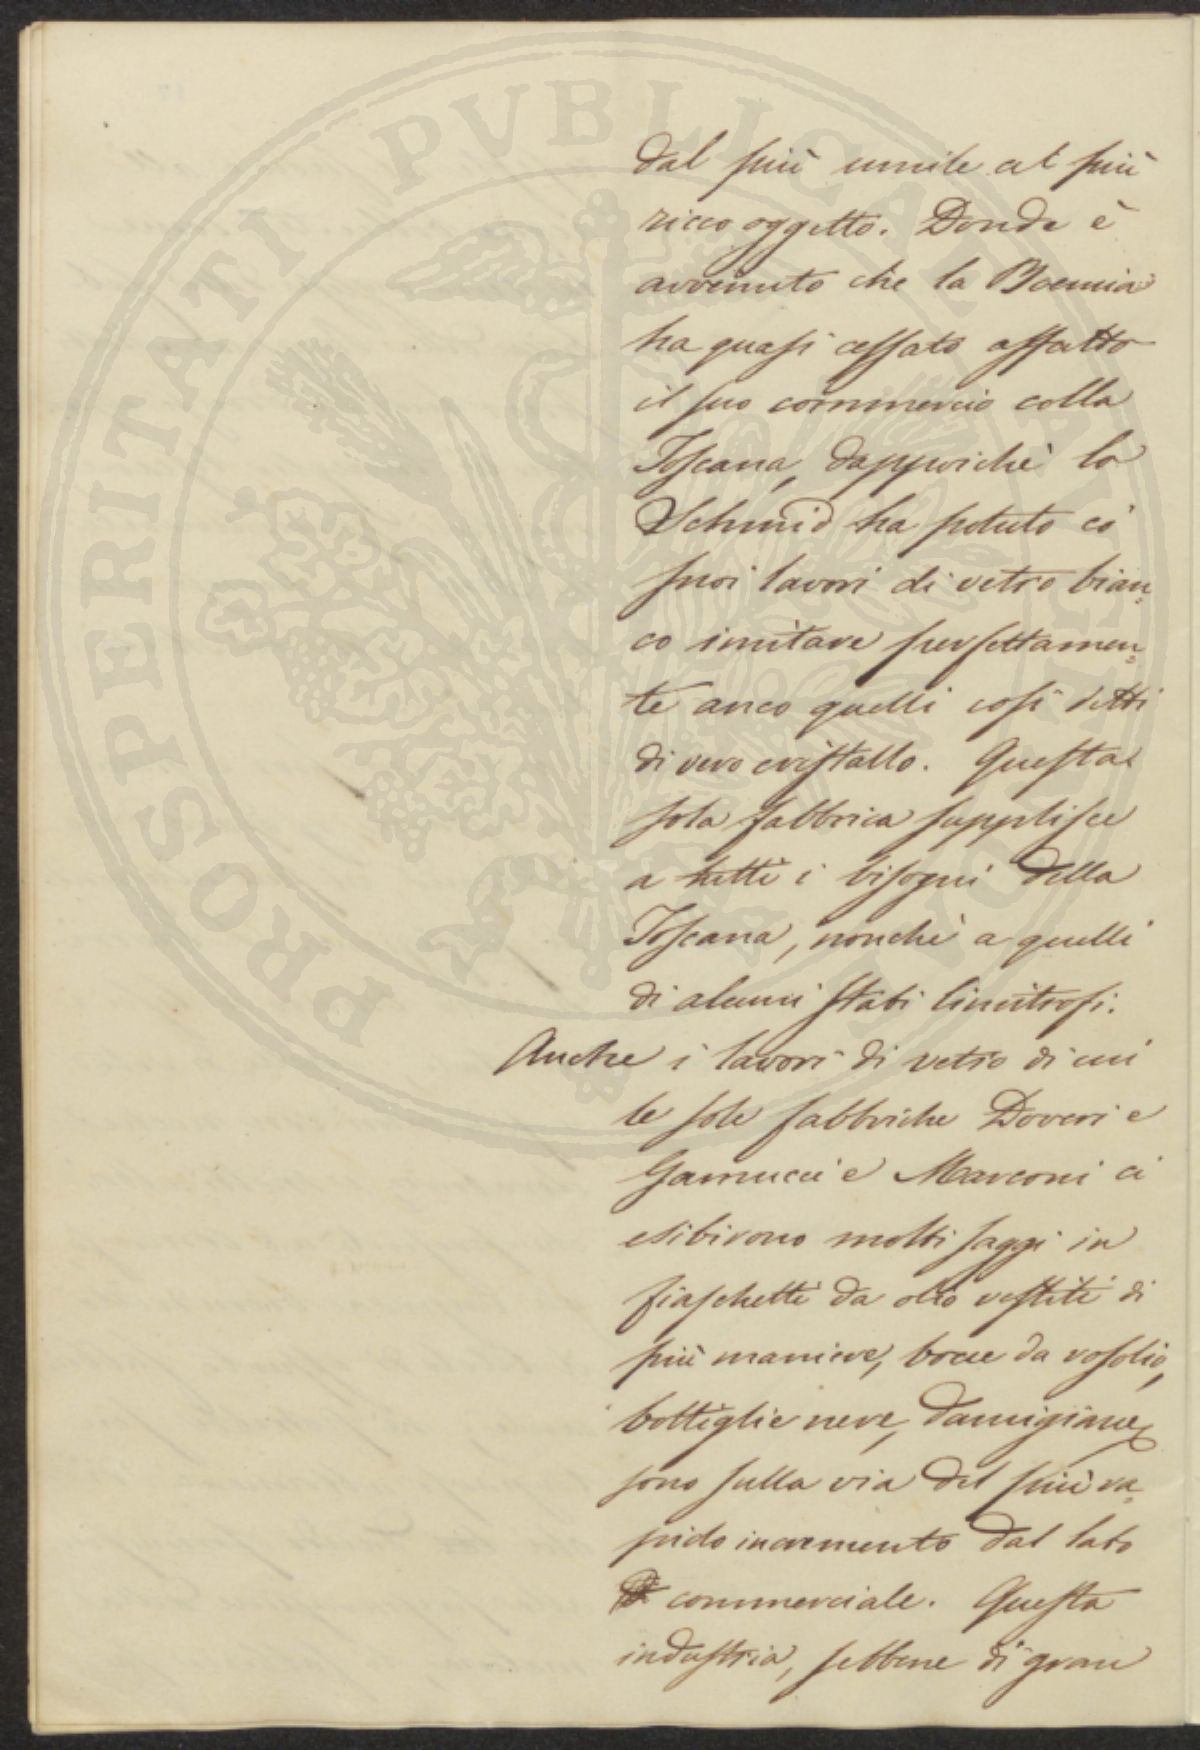 PROSPERITATI PVBLICAE AVGENDAE
dal più umile al più
ricco oggetto. Donde è
avvenuto che la Boemia
ha quasi cessato affatto
il suo commercio colla
Toscana, dappoichè lo
Schmid ha potuto co'
suoi lavori di vetro bian„
co imitare perfettamen„
te anco quelli così detti
di vero cristallo. Questa
sola fabbrica supplisce
a tutti i bisogni della
Toscana, nonchè a quelli
di alcuni Stati limitrofi.
Anche i lavori di vetro di cui
le sole fabbriche Doveri e
Gamucci e Marconi ci
esibirono molti saggi in
fiaschetti da olio vestiti di
più maniere, bocce da rosolio,
bottiglie nere, damigiane,
sono sulla via del più ra„
pido incremento dal lato
commerciale. Questa
industria, sebbene di gran